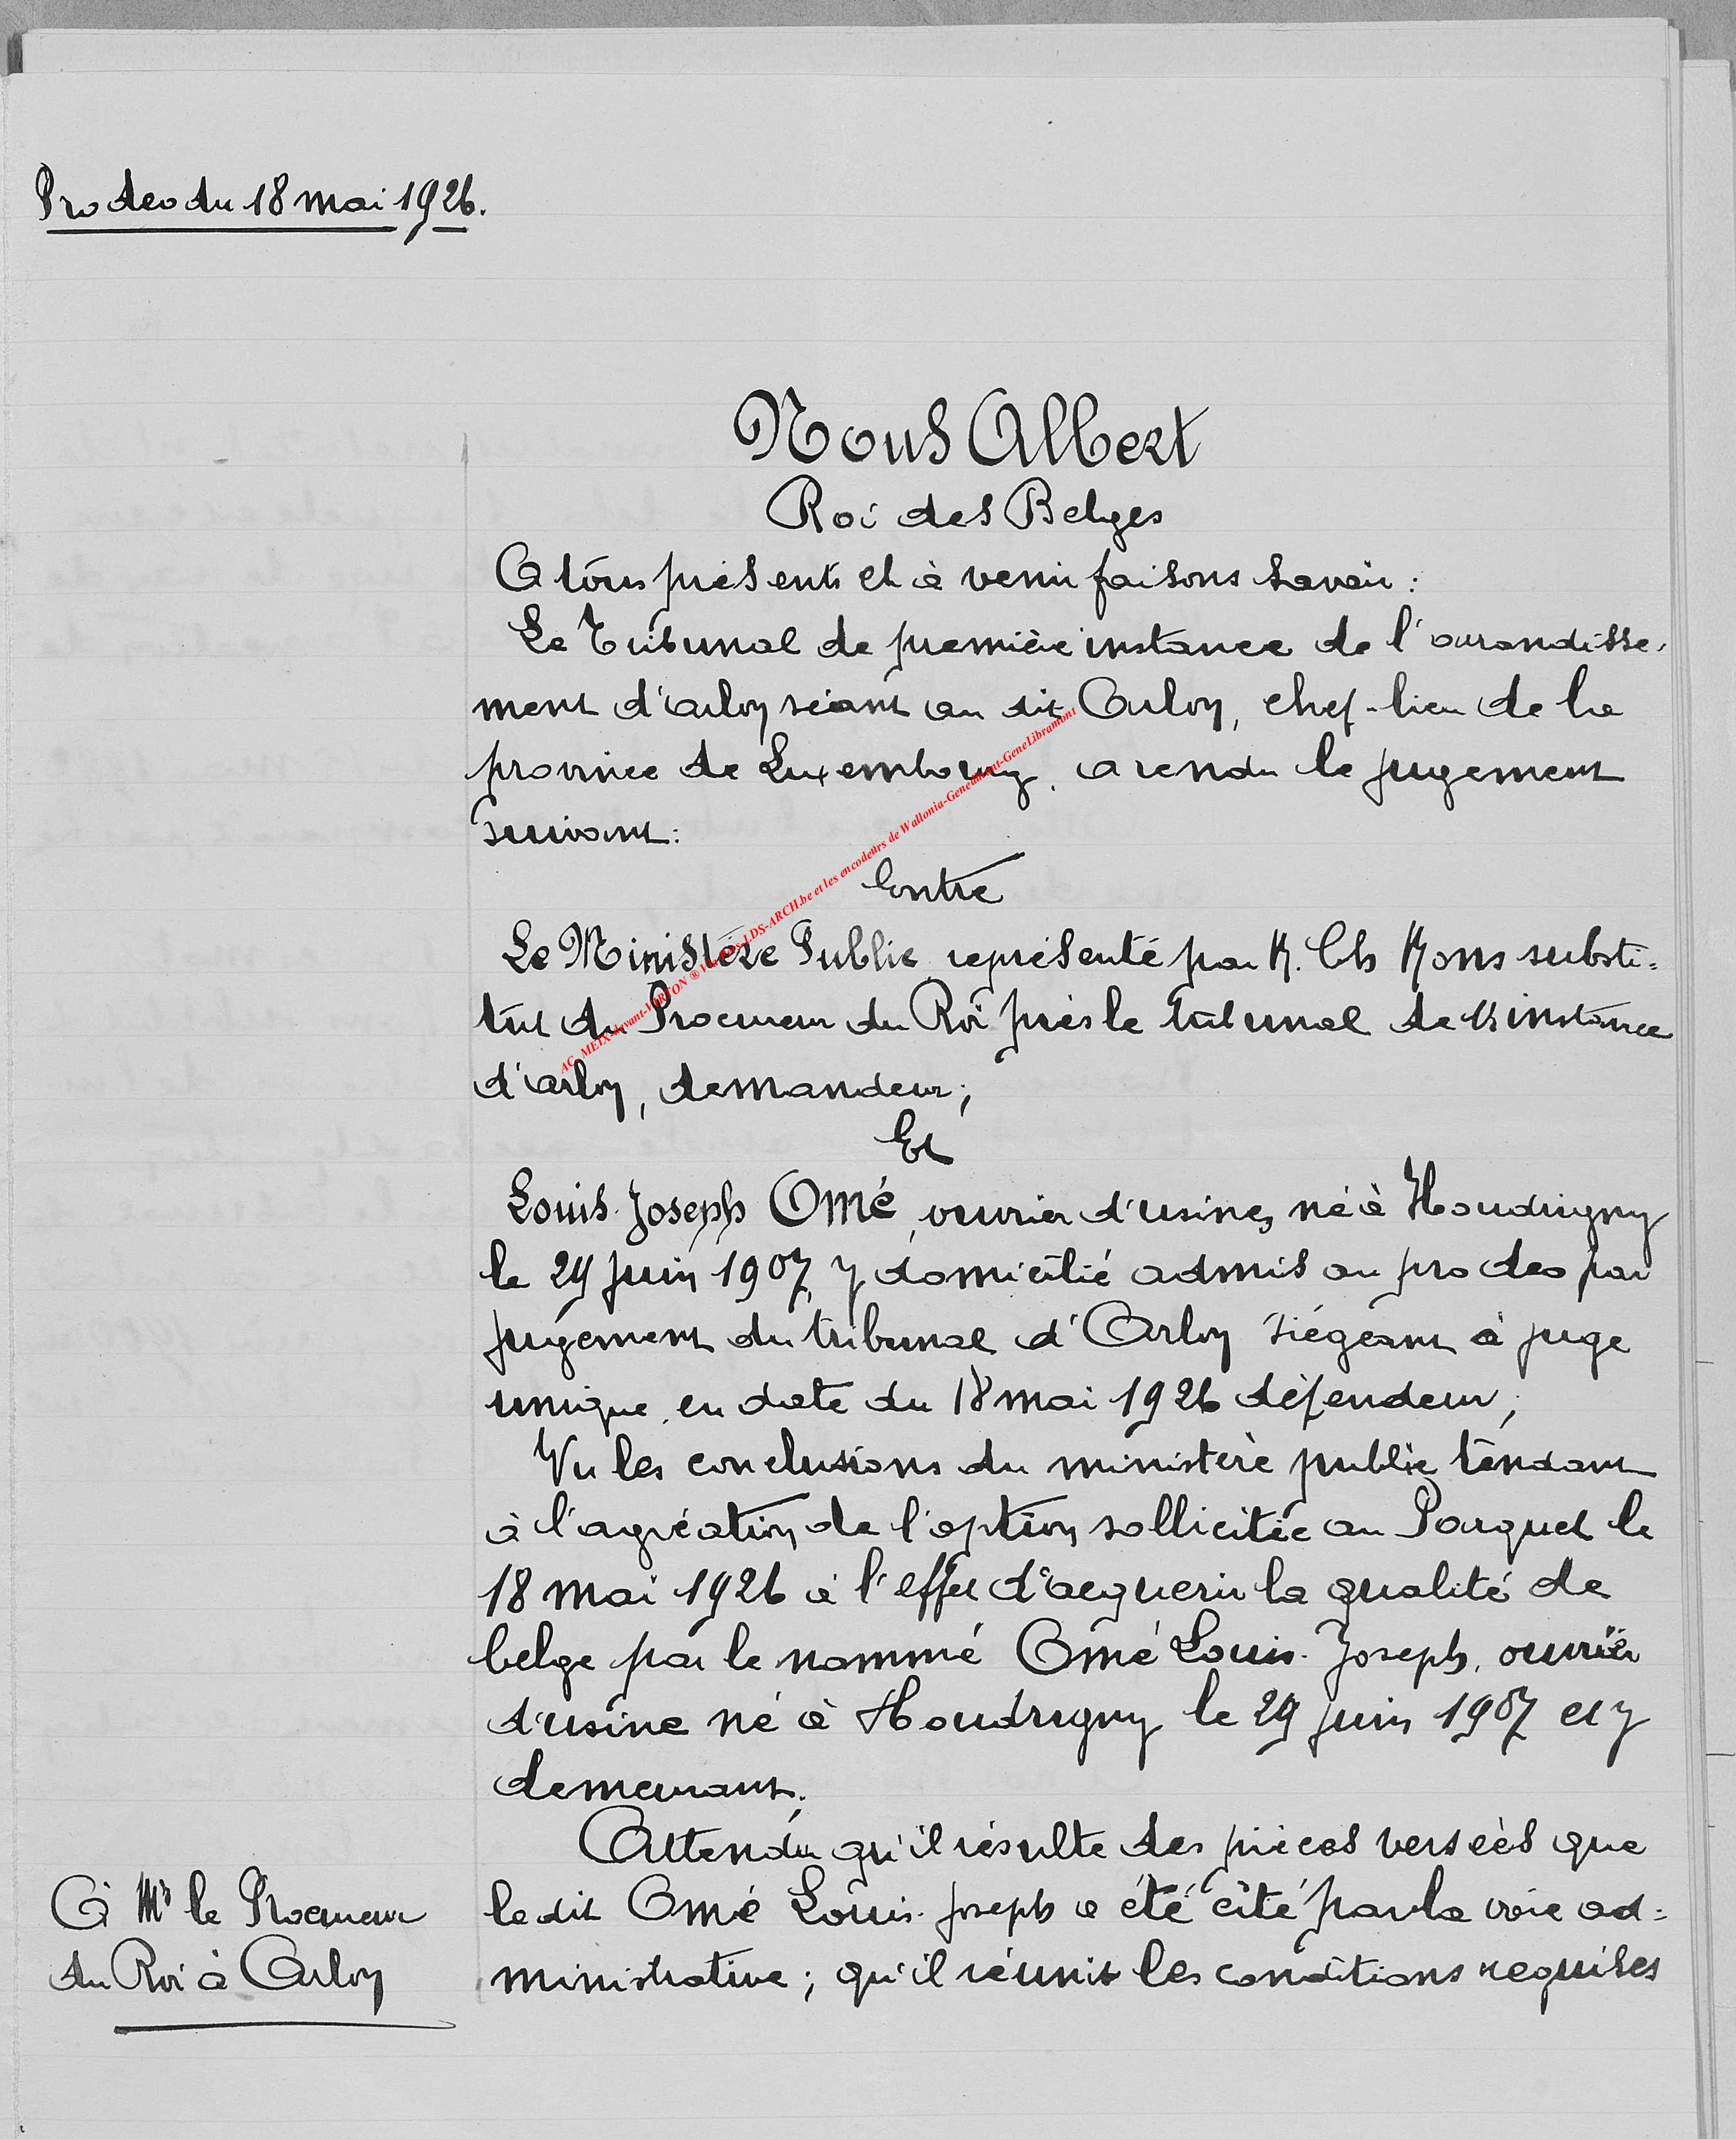 Pro deo du 18 mai 1926.
Nous Albert
Roi des Belges
A tous présents et à venir faisons savoir :
Le Tribunal de première instance de l'arrondisse-
ment d'arlon séant au dit Arlon, chef-lieu de la
province de Luxembourg, a rendu le jugement
suivant :
Entre
Le Ministère Public représenté par M. Ch Mons substi-
tut du Procureur du Roi près le tribunal de 1re instance
d'arlon, demandeur ;
Et
Louis-Joseph Omé, ouvrier d'usines, né à Houdrigny
le 29 juin 1907, y domicilié admis au pro deo par
jugement du tribunal d'Arlon siégeant à juge
unique, en date du 18 mai 1926 défendeur ;
Vu les conclusions du ministère public tendant
à l'agréation de l'option sollicitée au Parquet le
18 mai 1926 à l'effet d'acquerir la qualité de
belge par le nommé Omé Louis-Joseph, ouvrier
d'usine né à Houdrigny le 29 juin 1907 et y
demeurant ;
Attendu qu'il résulte des pièces versées que
le dit Omé Louis-Joseph a été cité par la voie ad-
ministrative ; qu'il réunit les conditions requises
A Mr le Procureur
du Roi à Arlon